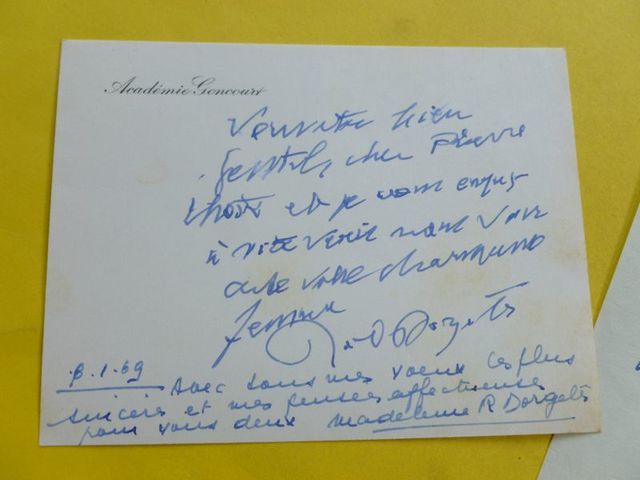 Académie Goncourt
Vous êtes bien
gentils, cher Pierre
et je vous
à vite venir nous voir
avec votre charmante
femme
R Dorgelès
8.1.69
avec tous mes voeux les plus
sincères et mes pensées affectueuses
pour vous deux Madeleine R Dorgelès